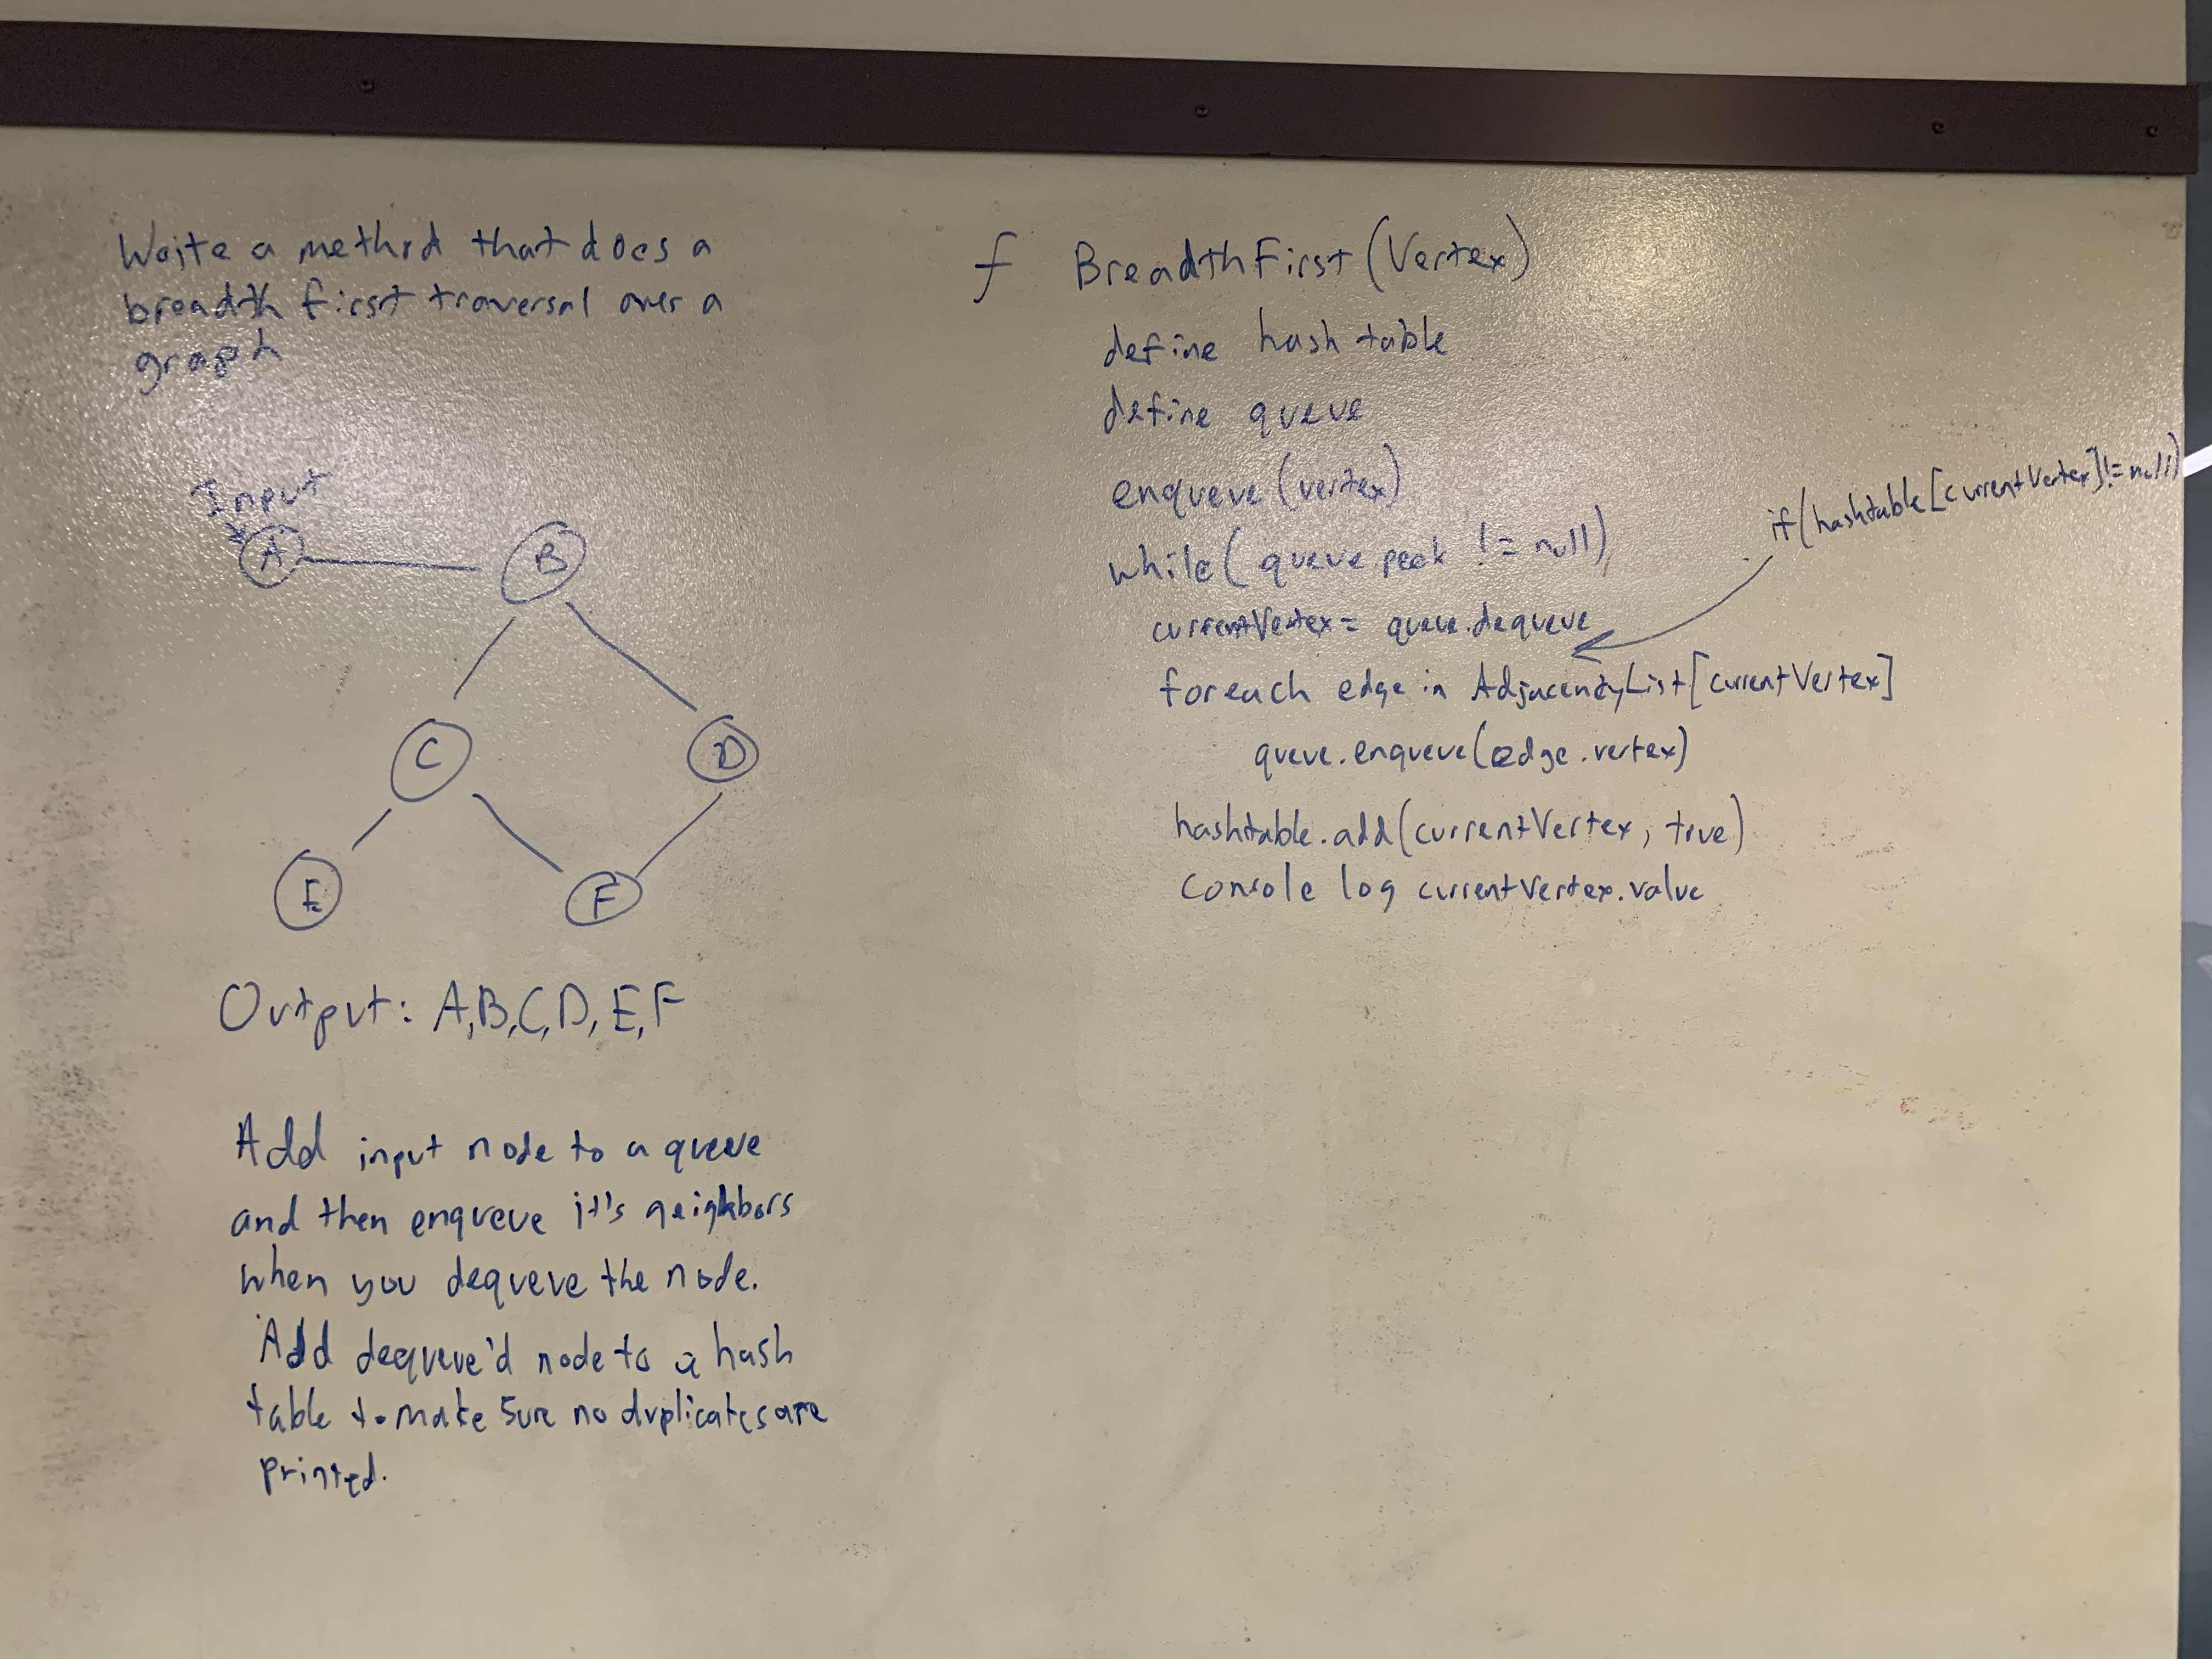 Write a method that does a
breadth first traversal over a
graph
Input
A
B
C
D
E
F
Output: A,B,C,D,E,F
Add input node to a queue
and then enqueue it's neighbors
when you dequeue the node.
Add dequeue'd node to a hash
table to make sure no duplicates are
printed.
f BreadthFirst(Vertex)
define hash table
define queue
enqueue(vertex)
while(queue.peek != null)
if(hashtable[currentVertex]!=null)
currentVertex = queue.dequeue
foreach edge in AdjacencyList[currentVertex]
queue.enqueue(edge.vertex)
hashtable.add(currentVertex, true)
Console log currentVertex.value